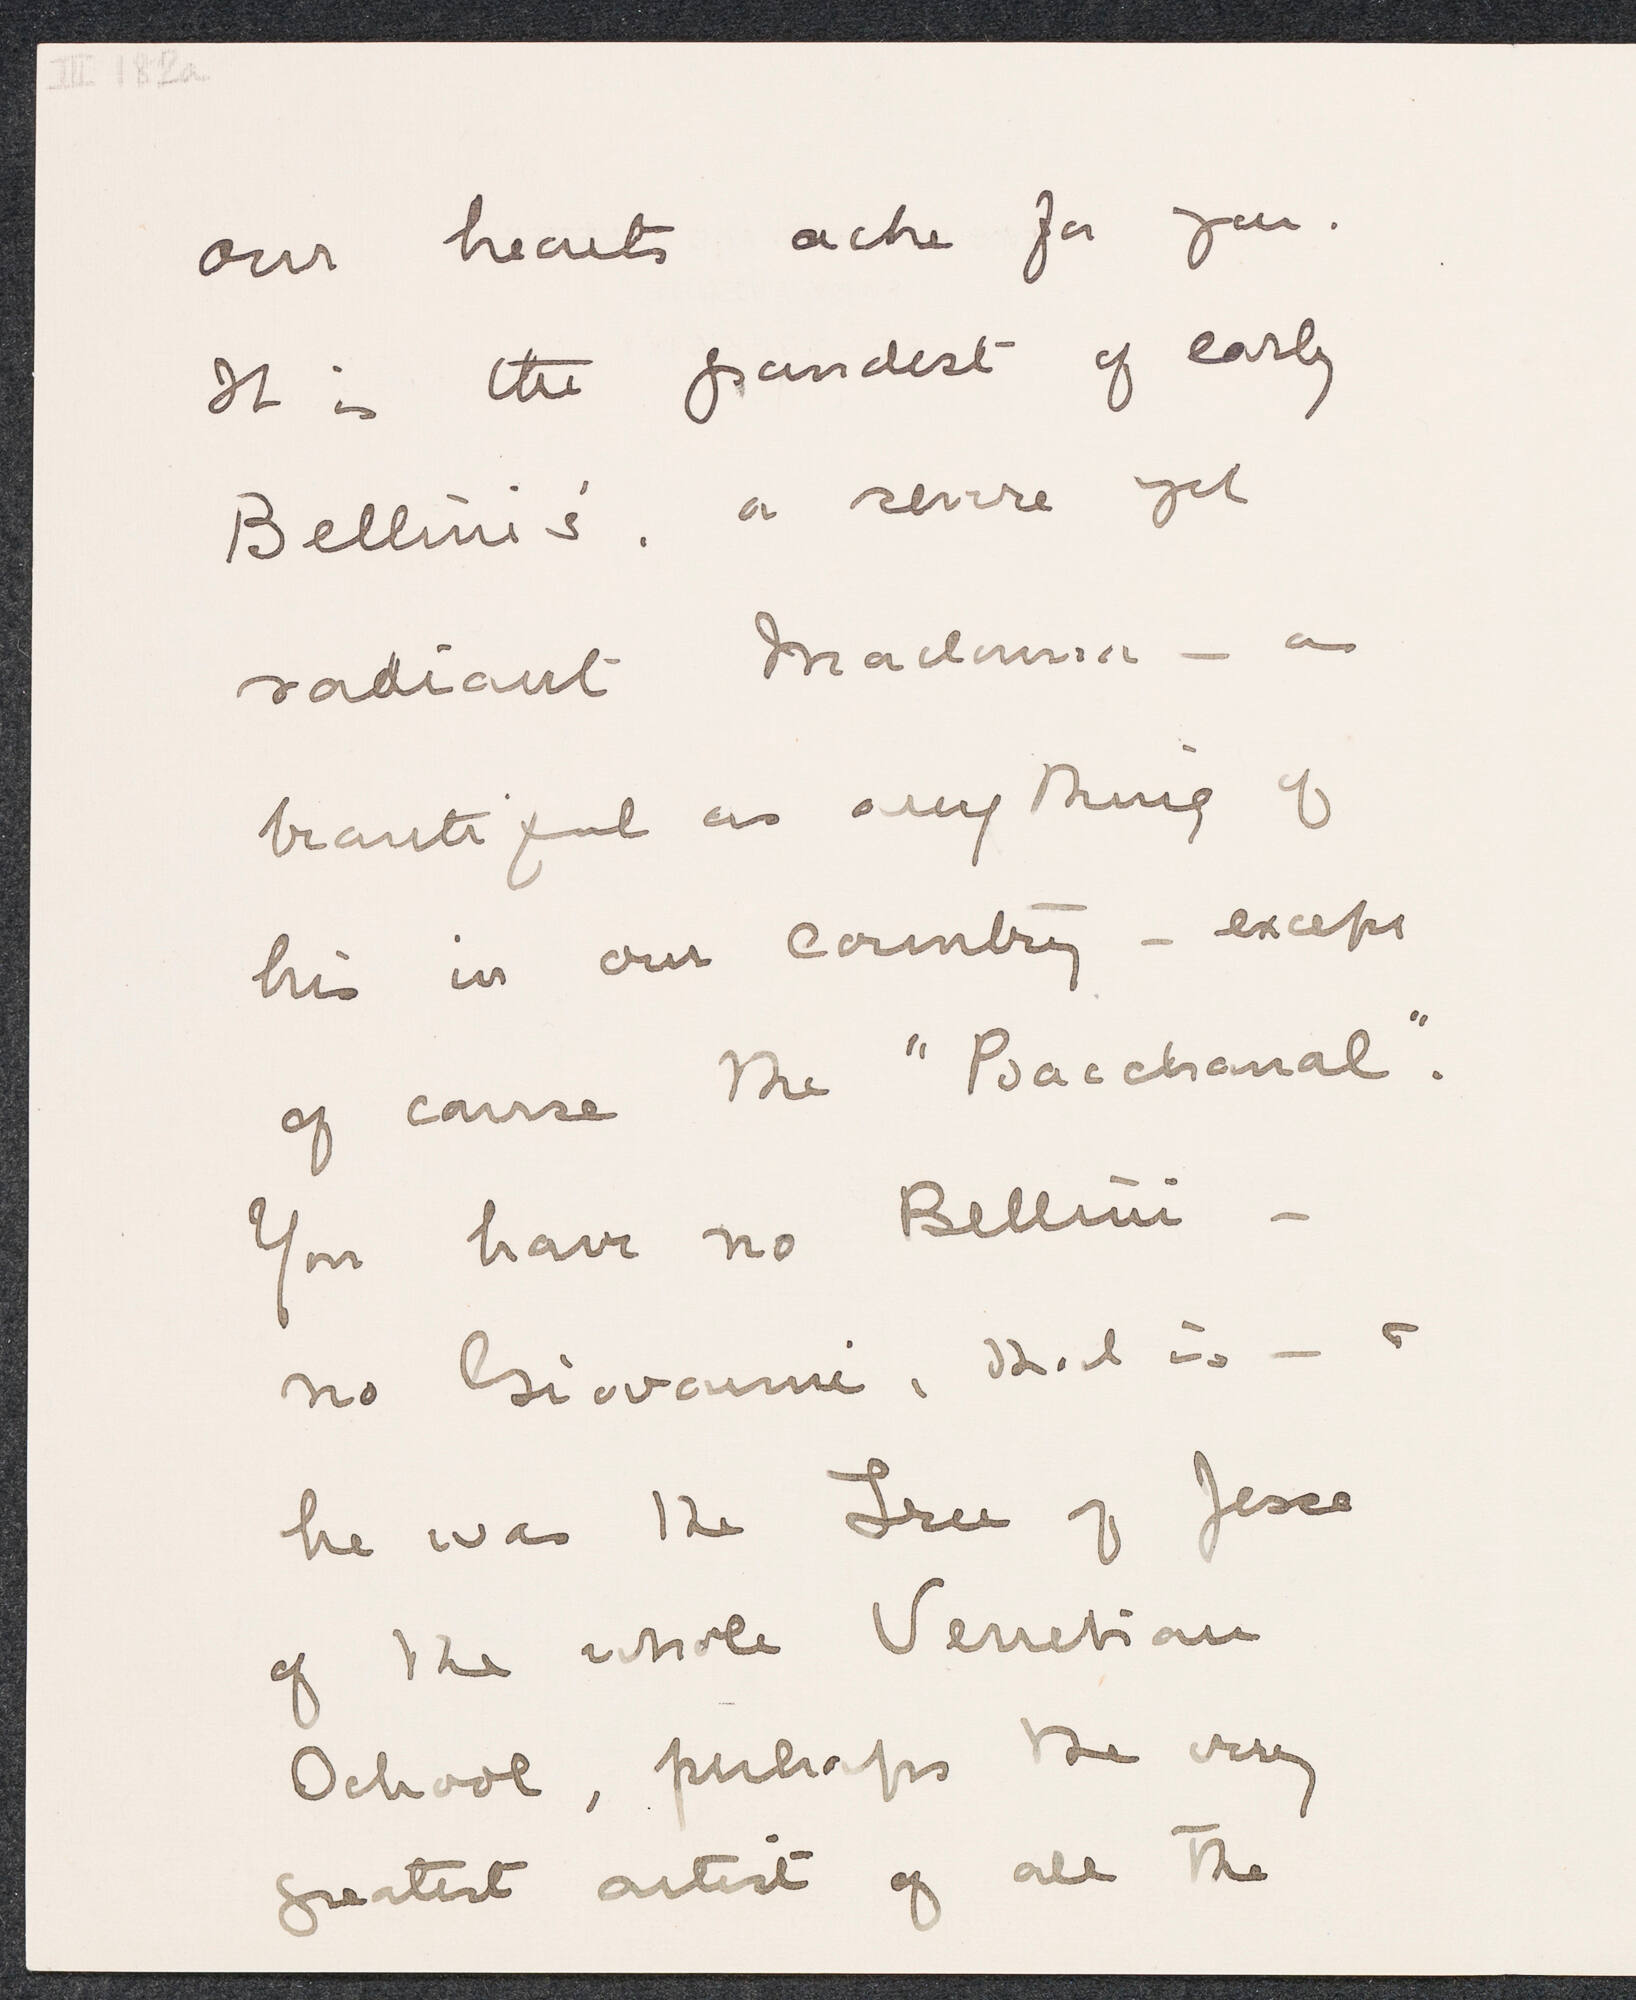 III 182a
our hearts ache for you.
It is the grandest of early
Bellini's, a severe yet
radiant Madonna – as
beautiful as anything of
his in our country – except
of course the "Bacchanal".
You have no Bellini –
no Giovanni, that is – &
he was the Tree of Jesse
of the whole Venetian
School, perhaps the very
greatest artist of all the